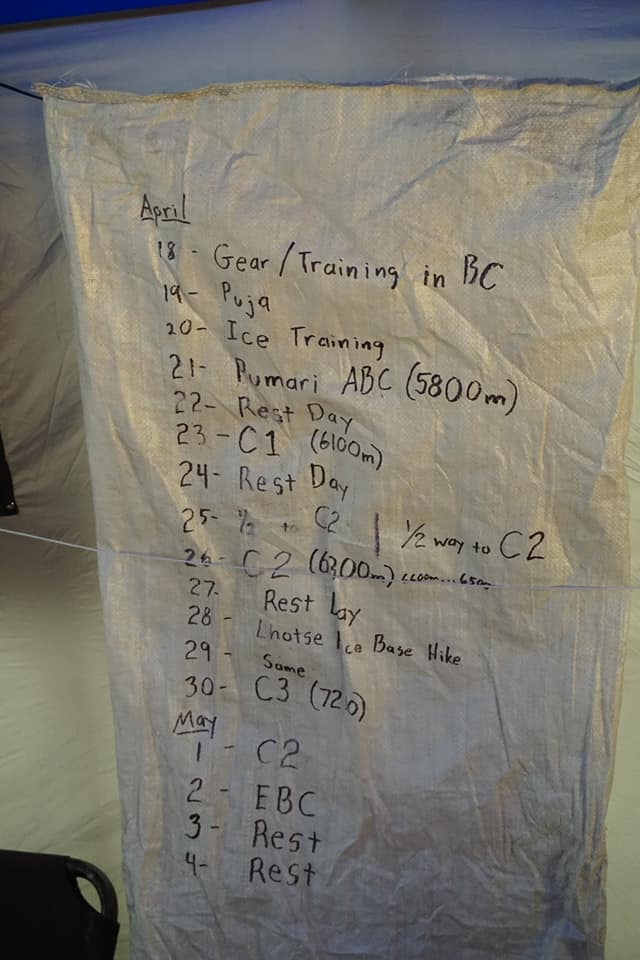 April
18 - Gear/Training in BC
19- Puja
20- Ice Training
21- Pumari ABC (5800m)
22- Rest Day
23 - C1 (6100m)
24- Rest Day
25- 1/2 to C2 | 1/2 way to C2
26- C2 (6300m)
27. Rest Day
28 - Lhotse Ice Base Hike
29 - Same
30- C3
May
1 - C2
2 - EBC
3- Rest
4- Rest